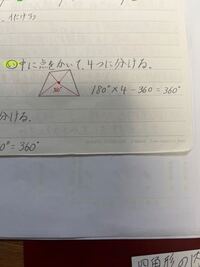 の中に点をかいて、4つに分ける。
360°
180°×4-360=360°
分ける。
0°=360°
四角形の